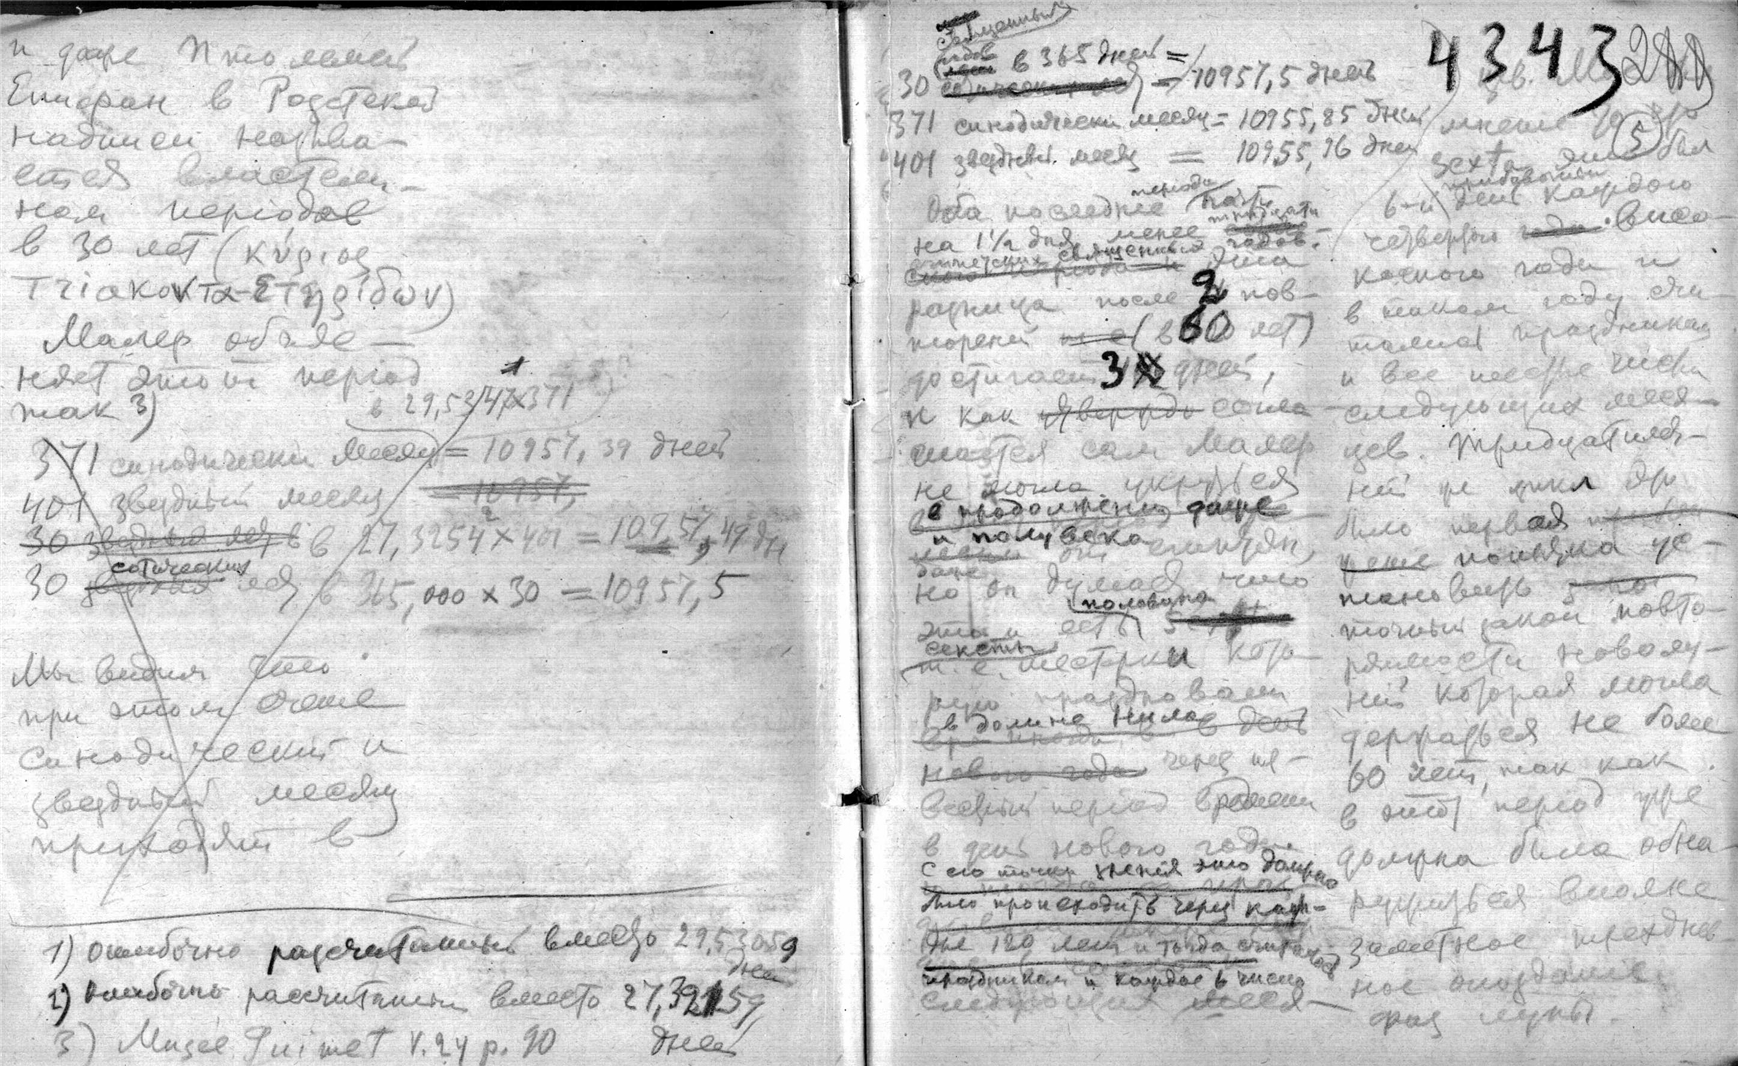 и даже Птолемей
Епифан в Розетской
надписи называ-
ется властели-
ном периодов
в 30 лет (κύριος
τριακοντα-ετηρίδων)
Малер объяс-
няет этот период
так 3)
в 29,5347 × 371
371 синодически месяц = 10957,39 дней
401 звездный месяц = 10957,
30 звездных лет в 27,3254 × 401 = 10957,49 дн
30 сотических лет в 365,000 × 30 = 10957,5
Мы видим что
при этом
синодический и
звездный месяц
приходят в
1) Ошибочно рассчитанный вместо 29,53059
дней
2) Ошибочно рассчитанный вместо 27,32159
3) Musée Guimet V. 24 p. 90 дней
священных
годов в 365 дней =
30 = 10957,5 дней
371 синодически месяц = 10955,85 дней
401 звездный месяц = 10955,96 дней
Оба последние периода
на 1½ дня менее тридцати
священных годов.
разница после 2 пов-
торений (в 60 лет)
достигает 3 дней,
и как согла-
шается сам Малер
не могла укрыться
в продолжении даже
и полувека
но он думает что
это и есть половина
сексты
т. е. шестерки кото-
рую праздновали
в долине Нила в день
нового года через
период времени
в день нового года.
С его точки зрения это должно
было происходить через каж-
дые 120 лет и тогда считался
праздником и каждое 6 число
следующих меся-
4 3 4 3
5
мнение
6-й день каждого
четвертого года висо-
косного года и
в таком году счи-
тались праздниками
и все шестые числа
следующих меся-
цев. Тридцатилет-
ний же цикл
была первая
попытка ус-
тановить
точный закон повто-
ряемости новолу-
ний которая могла
держаться не более
60 лет, так как
в этот период уже
должна была обна-
ружиться вполне
заметное трехднев-
ное опоздание
фаз луны.